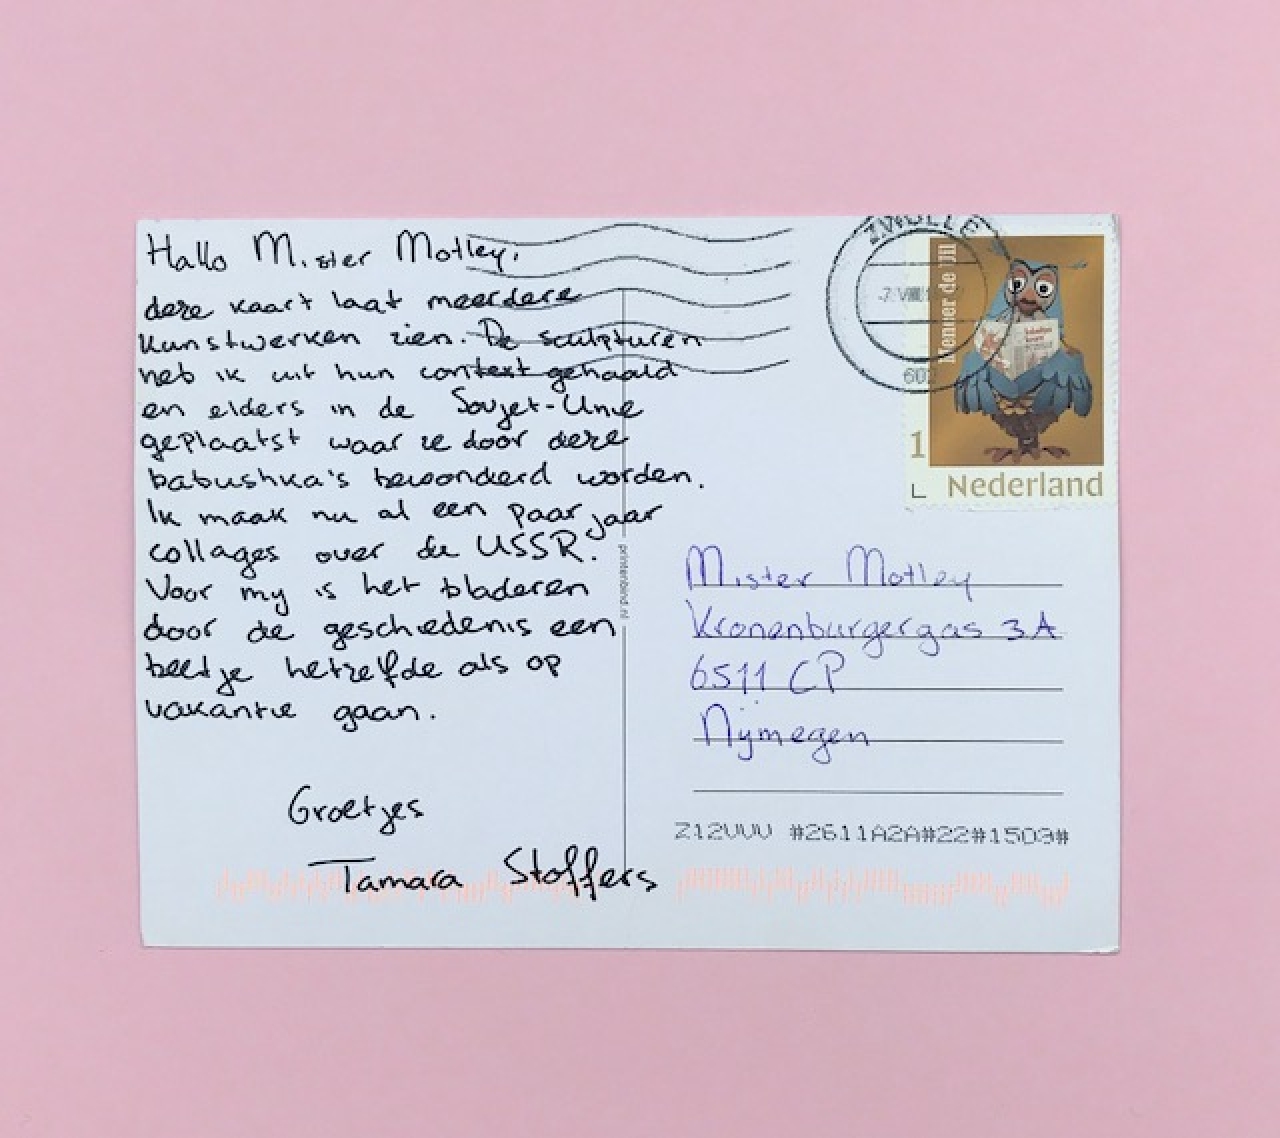 Hallo Mister Motley,
deze kaart laat meerdere
kunstwerken zien. De sculpturen
heb ik uit hun context gehaald
en elders in de Sovjet-Unie
geplaatst waar ze door deze
babushka's bewonderd worden.
Ik maak nu al een paar jaar
collages over de USSR.
Voor mij is het bladeren
door de geschiedenis een
beetje hetzelfde als op
vakantie gaan.
Groetjes
Tamara Stoffers
printenbind.nl
ZWOLLE
Meneer de Uil
1
Nederland
Mister Motley
Kronenburgergas 3A
6511 CP
Nijmegen
Z12VVV #2611A2A#22#1509#